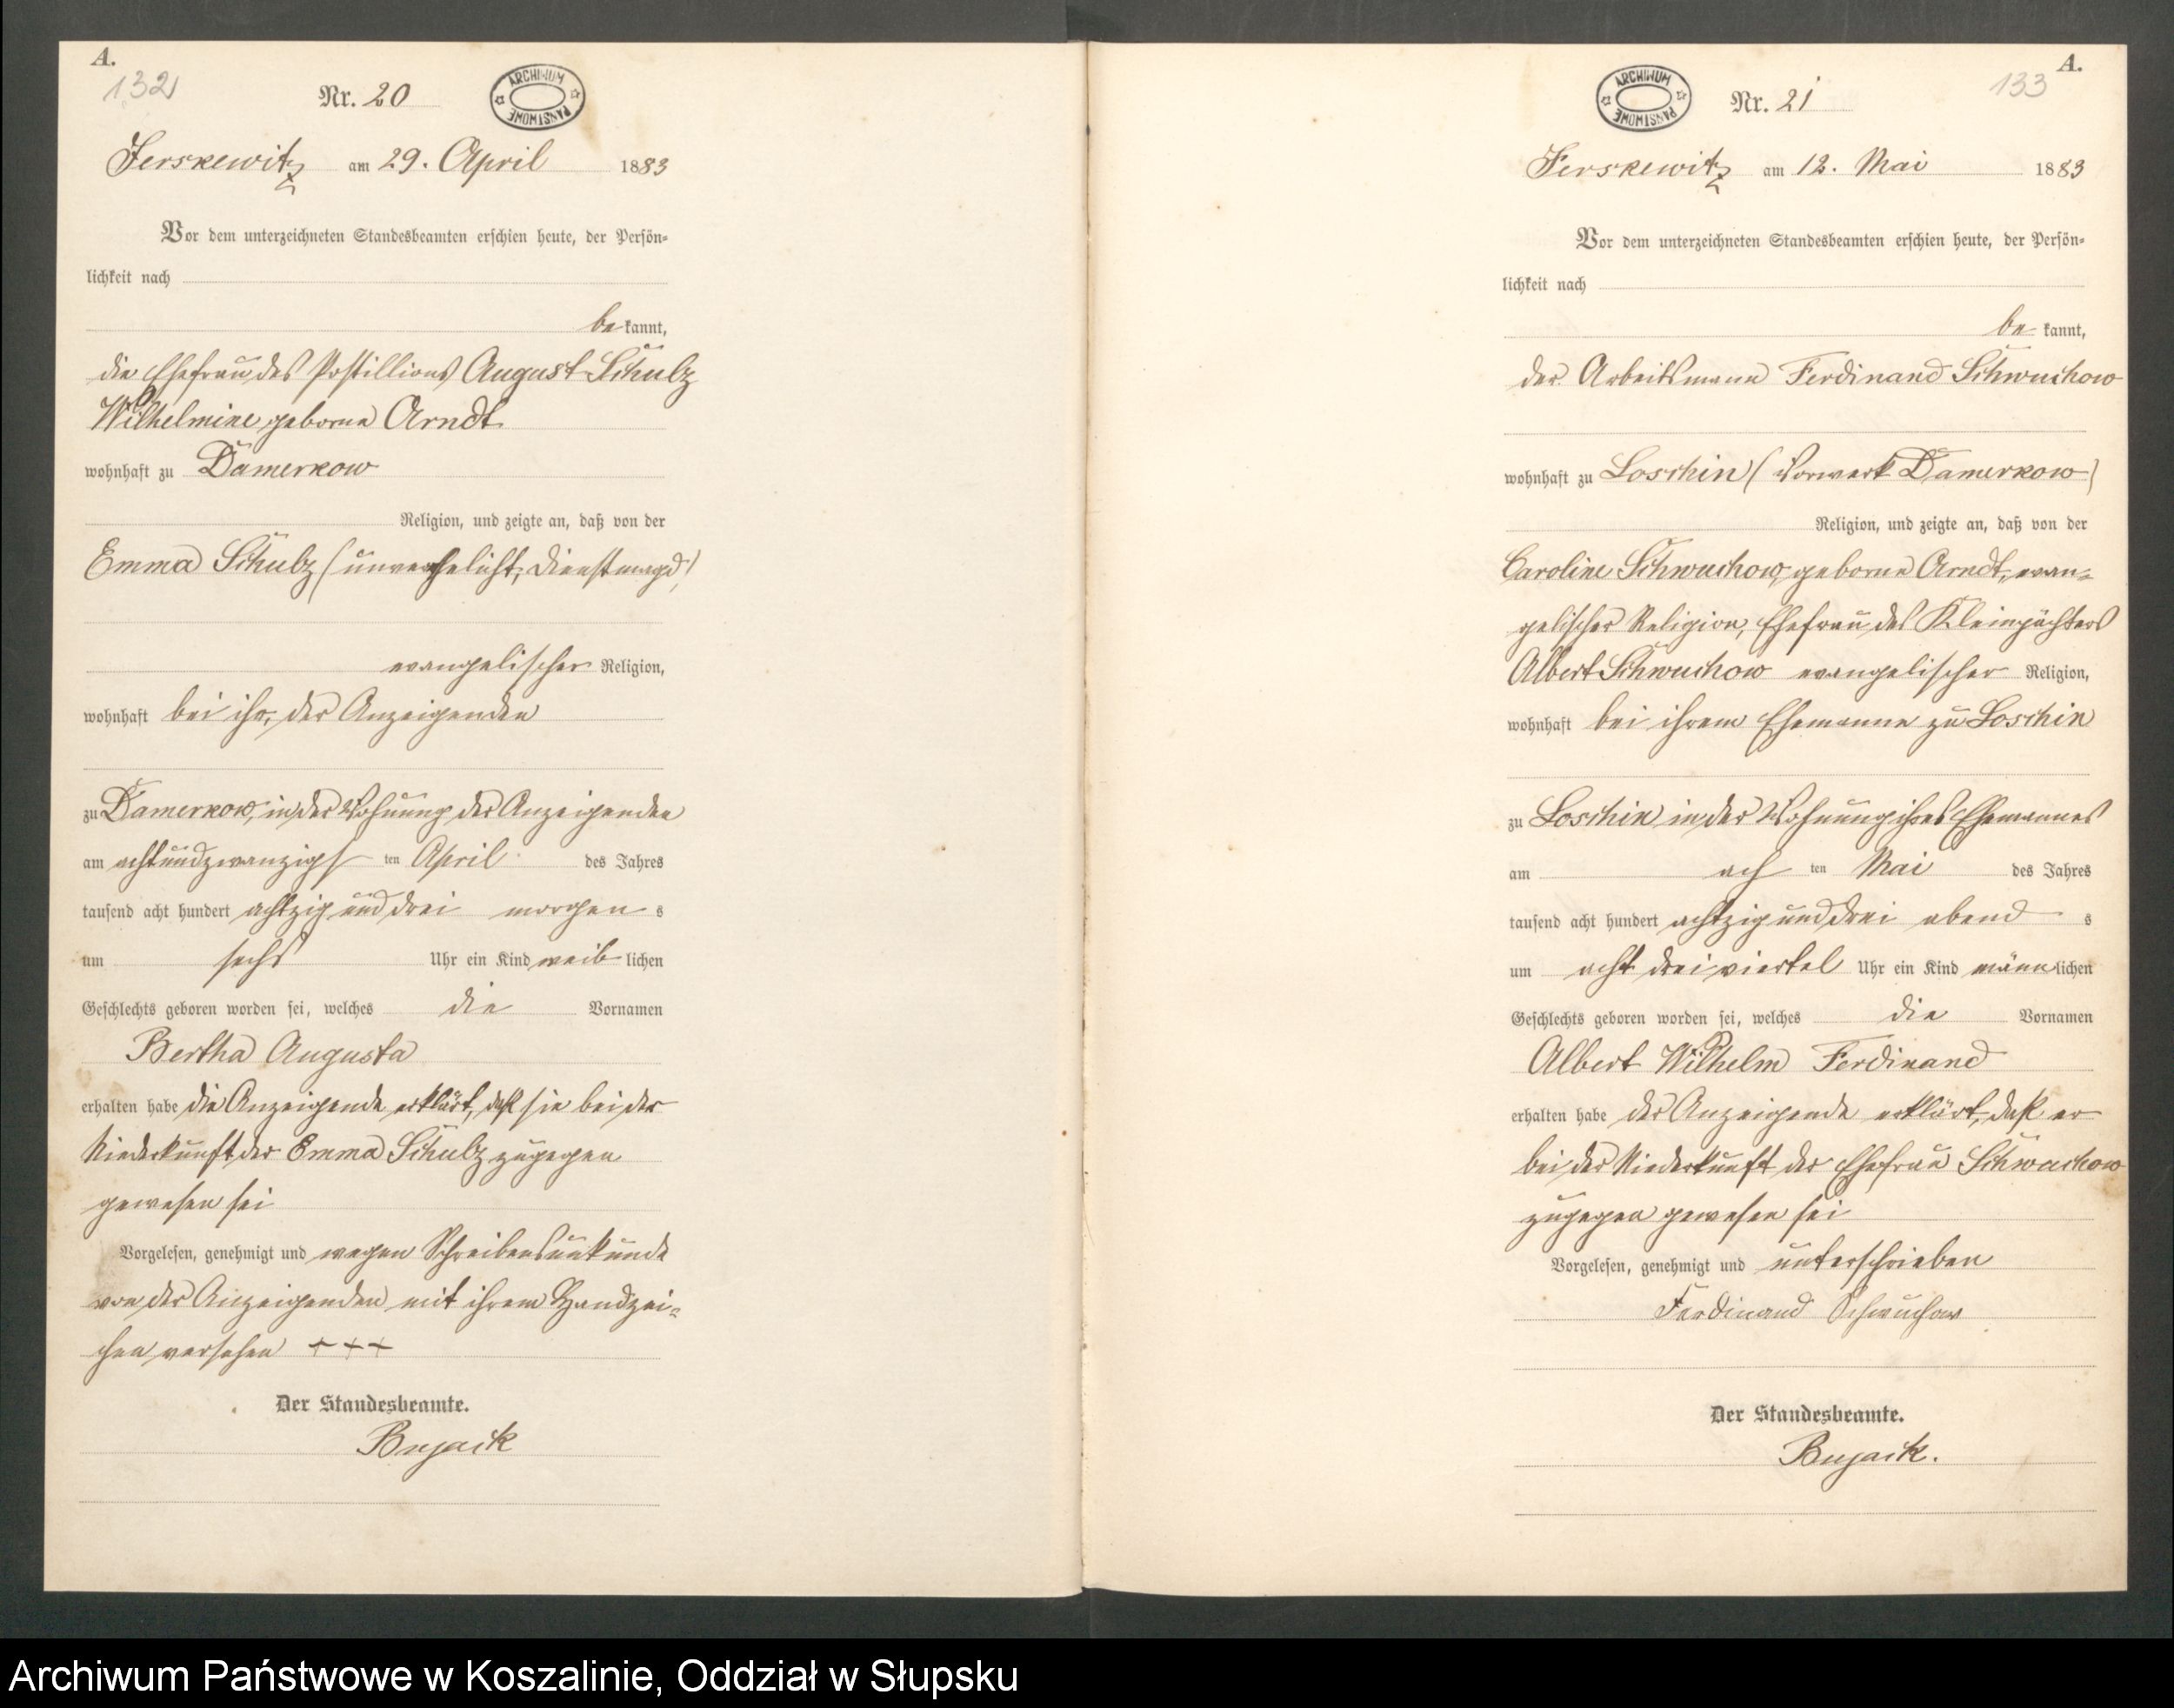 A.
132
Nr. 20
ARCHIWUM PAŃSTWOWE
Jerskewitz am 29. April 1883
Vor dem unterzeichneten Standesbeamten erschien heute, der Persön-
lichkeit nach
be kannt,
die Ehefrau des Postillions August Schulz
Wilhelmine geborne Arndt
wohnhaft zu Damerkow
Religion, und zeigte an, daß von der
Emma Schulz (unverehelicht, Dienstmagd)
evangelischer Religion,
wohnhaft bei ihr, der Anzeigenden
zu Damerkow, in der Wohnung der Anzeigenden
am achtundzwanzigs ten April des Jahres
tausend acht hundert achtzig und drei morgen s
um sechs Uhr ein Kind weib lichen
Geschlechts geboren worden sei, welches die Vornamen
Bertha Augusta
erhalten habe die Anzeigende erklärt, daß sie bei der
Niederkunft der Emma Schulz zugegen
gewesen sei
Vorgelesen, genehmigt und wegen Schreibensunkunde
von der Anzeigenden mit ihrem Handzei-
chen versehen +++
Der Standesbeamte.
Bujack
A.
133
ARCHIWUM PAŃSTWOWE
Nr. 21
Jerskewitz am 12. Mai 1883
Vor dem unterzeichneten Standesbeamten erschien heute, der Persön-
lichkeit nach
be kannt,
der Arbeitsmann Ferdinand Schwuchow
wohnhaft zu Loschin (Vorwerk Damerkow)
Religion, und zeigte an, daß von der
Caroline Schwuchow, geborne Arndt, evan-
gelischer Religion, Ehefrau des Kleinpächters
Albert Schwuchow evangelischer Religion,
wohnhaft bei ihrem Ehemanne zu Loschin
zu Loschin in der Wohnung ihres Ehemannes
am ach ten Mai des Jahres
tausend acht hundert achtzig und drei abend s
um acht dreiviertel Uhr ein Kind männ lichen
Geschlechts geboren worden sei, welches die Vornamen
Albert Wilhelm Ferdinand
erhalten habe der Anzeigende erklärt, daß er
bei der Niederkunft der Ehefrau Schwuchow
zugegen gewesen sei
Vorgelesen, genehmigt und unterschrieben
Ferdinand Schwuchow
Der Standesbeamte.
Bujack.
Archiwum Państwowe w Koszalinie, Oddział w Słupsku